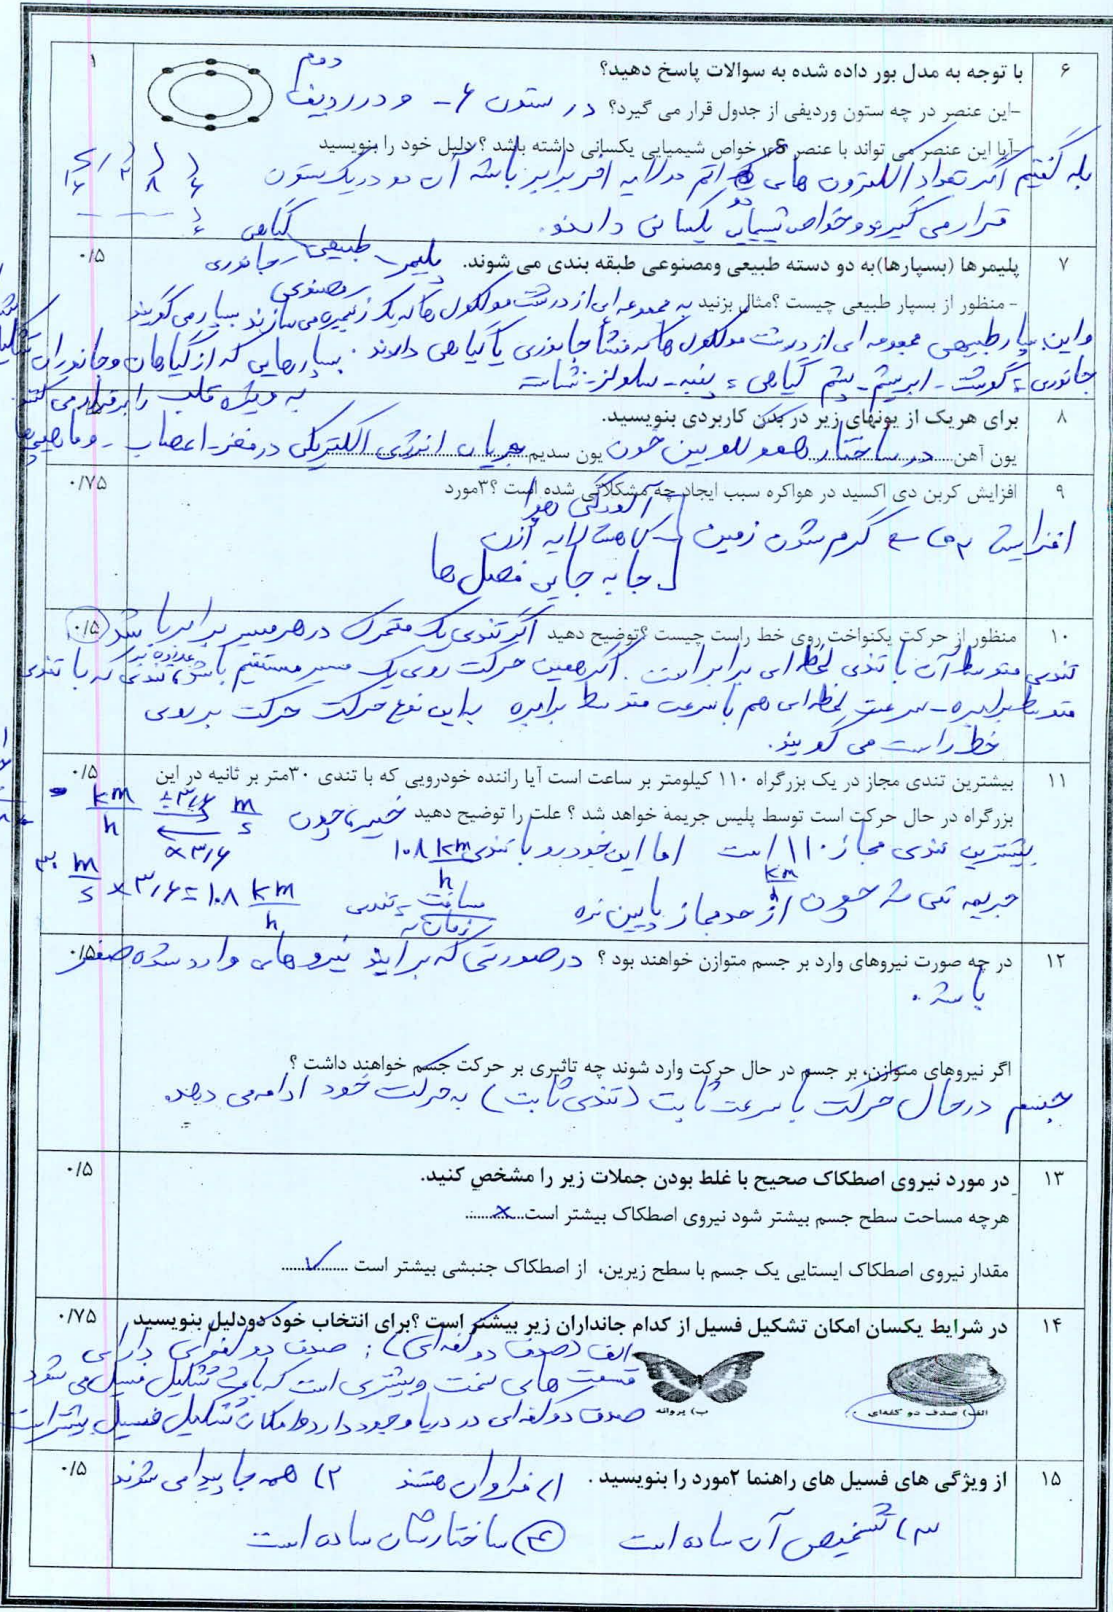 ۶
با توجه به مدل بور داده شده به سوالات پاسخ دهید؟
۱
-این عنصر در چه ستون وردیفی از جدول قرار می گیرد؟ در ستون ۶ - و در ردیف دوم
-آیا این عنصر می تواند با عنصر ₁₆S خواص شیمیایی یکسانی داشته باشد ؟ دلیل خود را بنویسید
بله گفتیم اگر تعداد الکترون های اتم در لایه آخر برابر باشه آن دو در یک ستون
قرار می گیرند و خواص شیمیایی یکسانی دارند.
۷
پلیمرها (بسپارها)به دو دسته طبیعی ومصنوعی طبقه بندی می شوند.
۰/۵
پلیمر طبیعی گیاهی جانوری مصنوعی
- منظور از بسپار طبیعی چیست ؟مثال بزنید به مجموعه ای از درشت مولکول ها که یک زنجیره می سازند بسپار می گویند
و این بسپار طبیعی مجموعه ای از درشت مولکول ها که منشأ جانوری یا گیاهی دارند. بسپارهایی که از گیاهان و جانوران
جانوری = گوشت - ابریشم - پشم گیاهی = پنبه - سلولز - نشاسته
۸
برای هریک از یونهای زیر در بدن کاربردی بنویسید.
به ویژه قلب را برقرار می کند
یون آهن در ساختار هموگلوبین خون یون سدیم جریان انرژی الکتریکی در مغز - اعصاب - و ماهیچه ها
۹
افزایش کربن دی اکسید در هواکره سبب ایجاد چه مشکلاتی شده است ؟۳مورد
۰/۷۵
آلودگی هوا
افزایش دما → گرم شدن زمین کاهش لایه ازن
جا به جایی فصل ها
۱۰
منظور از حرکت یکنواخت روی خط راست چیست ؟توضیح دهید اگر تندی یک متحرک در هر مسیر برابر باشد
۰/۵
تندی متوسط آن با تندی لحظه ای برابر است. اگر همین حرکت روی یک مسیر مستقیم باشد تندی که با تندی
متوسط برابره - سرعت لحظه ای هم با سرعت متوسط برابره به این نوع حرکت حرکت بر روی
خط راست می گویند.
۱۱
بیشترین تندی مجاز در یک بزرگراه ۱۱۰ کیلومتر بر ساعت است آیا راننده خودرویی که با تندی ۳۰متر بر ثانیه در این
۰/۵
بزرگراه در حال حرکت است توسط پلیس جریمه خواهد شد ؟ علت را توضیح دهید خیر، چون
m/s km/h ÷۳٫۶ ×۳٫۶
بیشترین تندی مجاز ۱۱۰ km/h است اما این خودرو با تندی ۱۰۸ km/h
جریمه نمی شه چون از حد مجاز پایین تره
تندی = مسافت / زمان
۳۰ m/s × ۳٫۶ = ۱۰۸ km/h
۱۲
در چه صورت نیروهای وارد بر جسم متوازن خواهند بود ؟ در صورتی که برآیند نیرو های وارد شده صفر
۰/۵
باشد.
اگر نیروهای متوازن، بر جسم در حال حرکت وارد شوند چه تاثیری بر حرکت جسم خواهند داشت ؟
جسم در حال حرکت با سرعت ثابت (تندی ثابت) به حرکت خود ادامه می دهد.
۱۳
در مورد نیروی اصطکاک صحیح با غلط بودن جملات زیر را مشخص کنید.
۰/۵
هرچه مساحت سطح جسم بیشتر شود نیروی اصطکاک بیشتر است ×
مقدار نیروی اصطکاک ایستایی یک جسم با سطح زیرین، از اصطکاک جنبشی بیشتر است ✓
۱۴
در شرایط یکسان امکان تشکیل فسیل از کدام جانداران زیر بیشتر است ؟برای انتخاب خود دودلیل بنویسید
۰/۷۵
الف (صدف دو کفه ای): صدف دو کفه ای دارای
قسمت های سخت و بیشتری است که باعث تشکیل فسیل می شود
صدف دو کفه ای در دریا وجود دارد و امکان تشکیل فسیل بیشتر است
الف) صدف دو کفه‌ای
ب) پروانه
۱۵
از ویژگی های فسیل های راهنما ۲مورد را بنویسید . ۱) فراوان هستند ۲) همه جا پیدا می شوند
۰/۵
۳) تشخیص آن ساده است ۴) ساختارشان ساده است